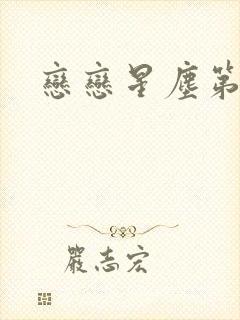 戀戀星塵第
嚴志宏